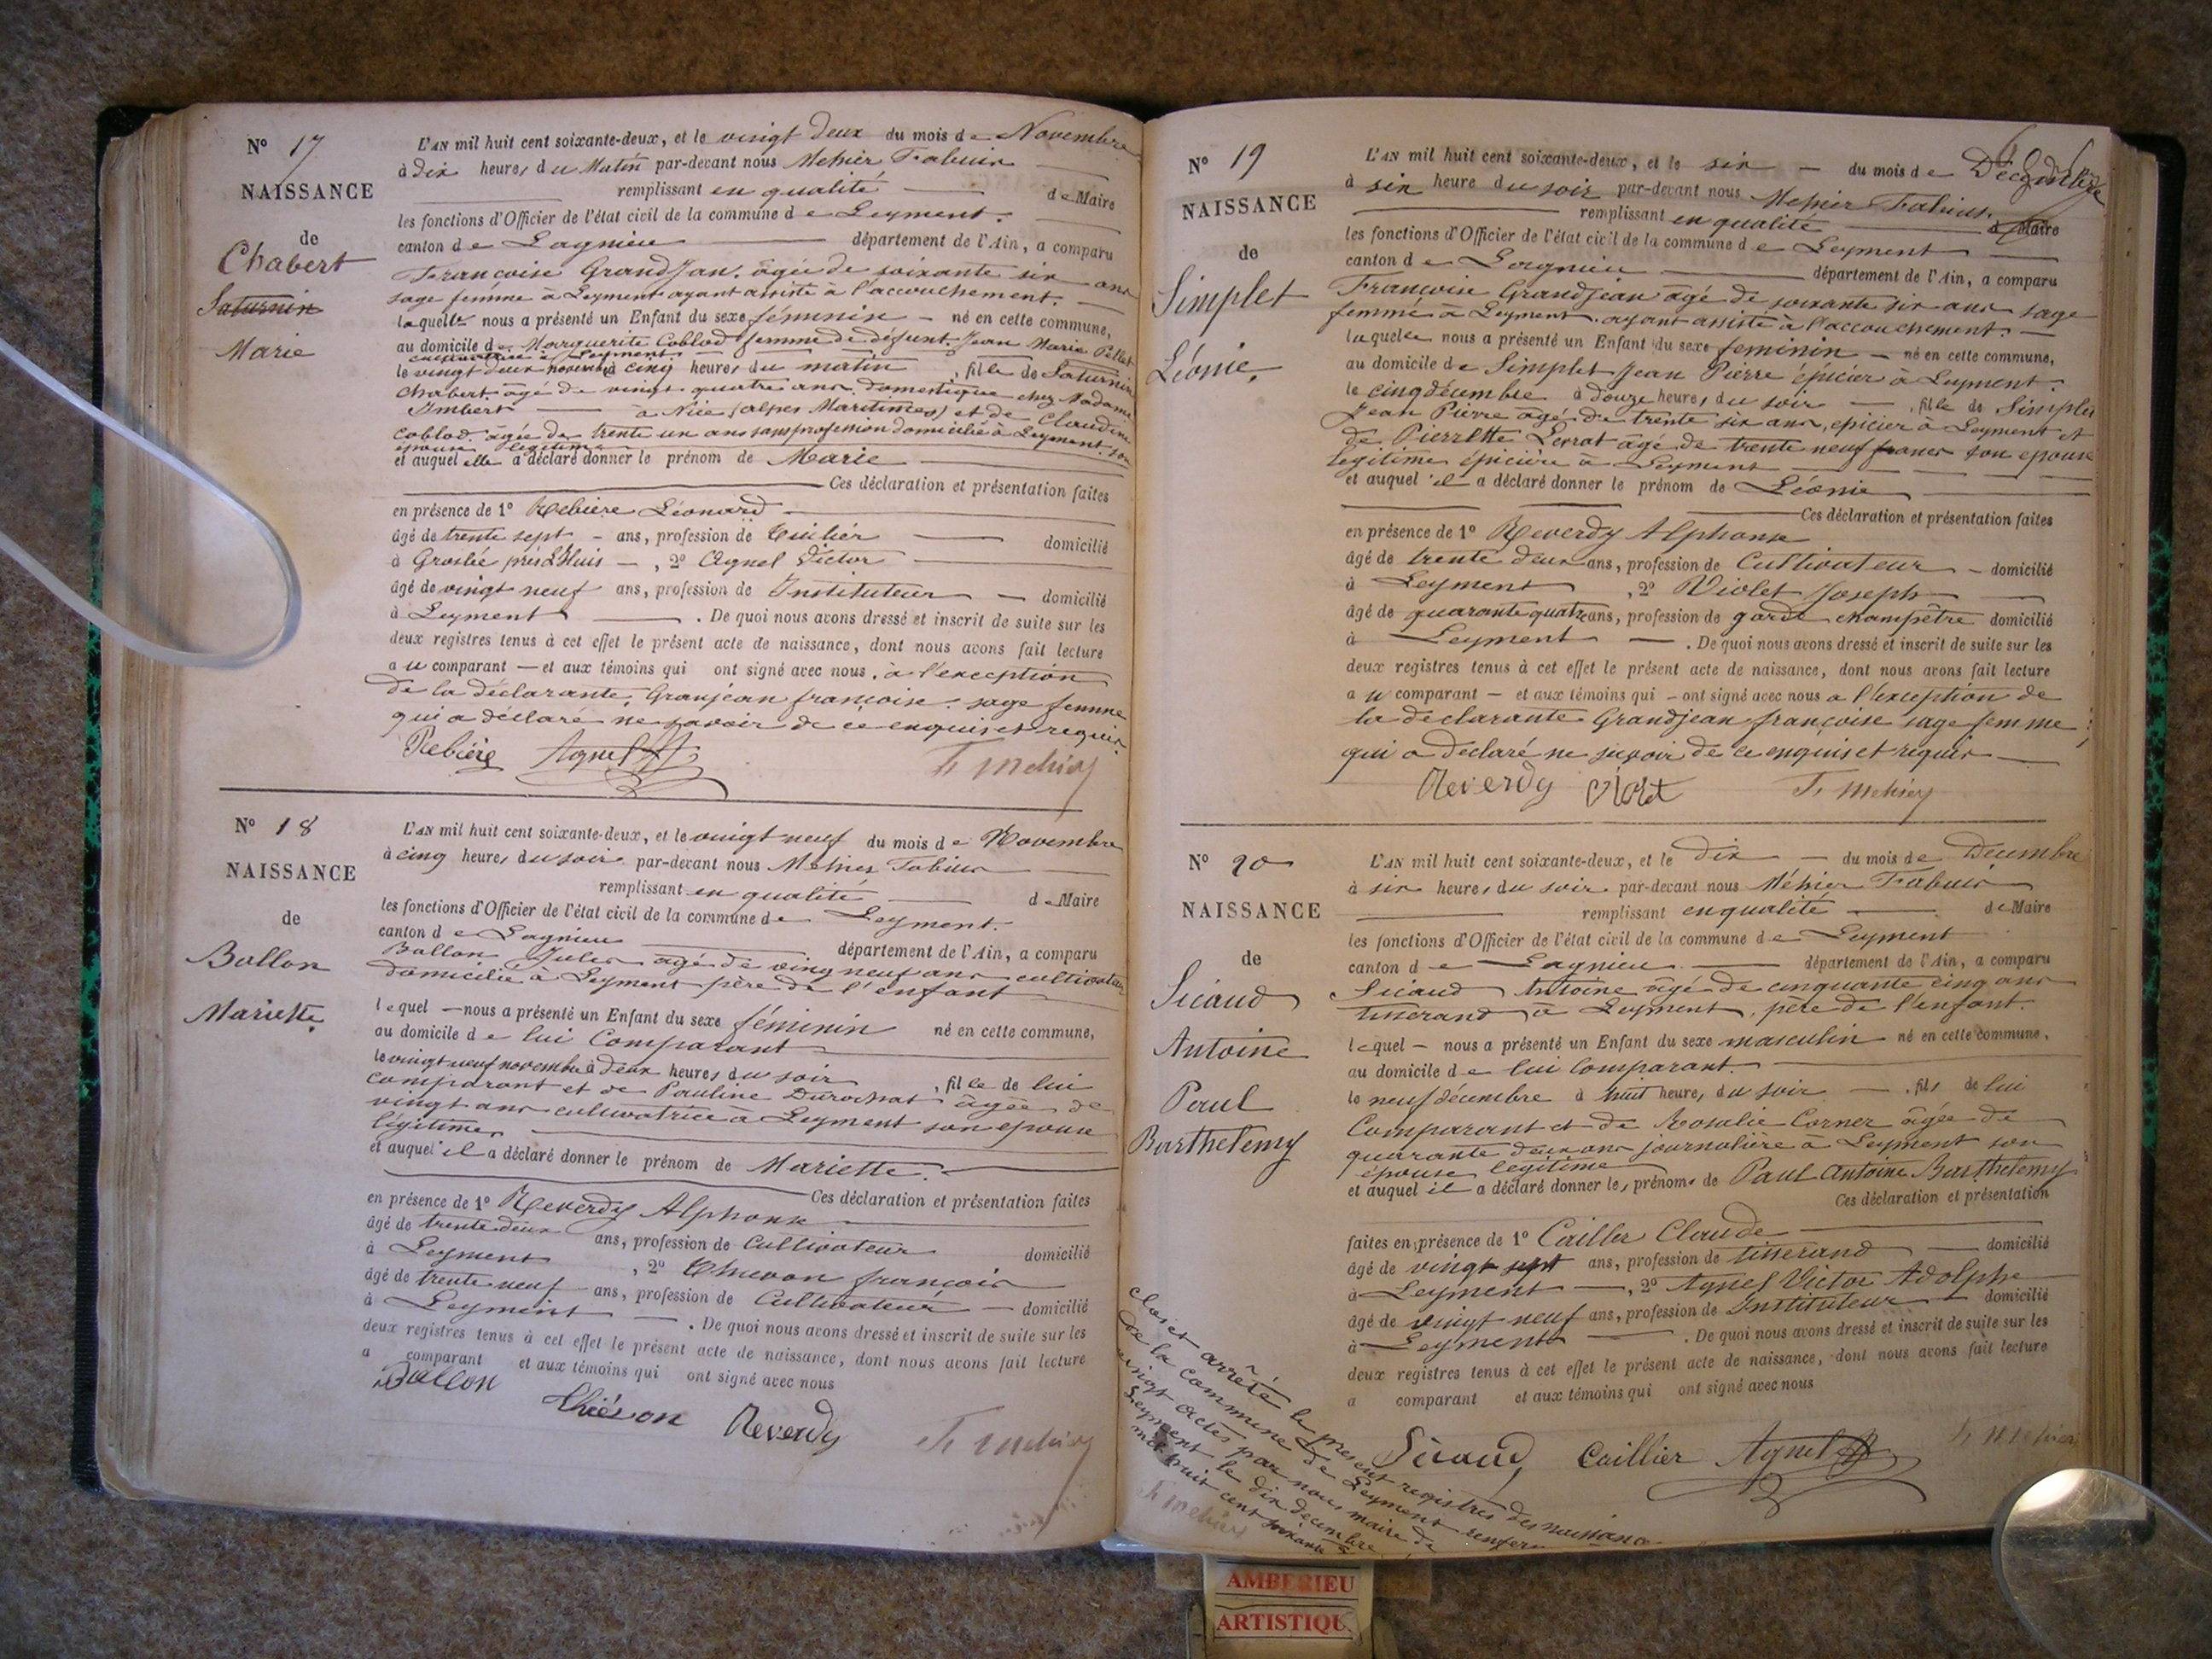 N° 17
NAISSANCE
de
Chabert
Saturnin
Marie
L'AN mil huit cent soixante-deux, et le vingt deux du mois de Novembre
à dix heures du Matin par-devant nous Mehier Fabius
remplissant en qualité de Maire
les fonctions d'Officier de l'état civil de la commune de Leyment.
canton de Lagnieu département de l'Ain, a comparu
Françoise GrandJan, âgée de soixante six ans
sage femme à Leyment ayant assisté à l'accouchement.
laquelle nous a présenté un Enfant du sexe féminin né en cette commune,
au domicile de Marguerite Coblod femme de défunt Jean Marie Pellet
cultivatrice à Leyment
le vingt deux novembre à cinq heures du matin, fille de Saturnin
Chabert âgé de vingt quatre ans domestique chez Madame
Imbert à Nice (alpes Maritimes) et de Claudine
Coblod âgée de trente un ans sans profession domiciliée à Leyment son
épouse légitime
et auquel elle a déclaré donner le prénom de Marie
Ces déclaration et présentation faites
en présence de 1° Rebière Léonard
âgé de trente sept - ans, profession de Tuilier domicilié
à Groslée près L'Huis - , 2° Agnel Victor
âgé de vingt neuf ans, profession de Instituteur - domicilié
à Leyment . De quoi nous avons dressé et inscrit de suite sur les
deux registres tenus à cet effet le présent acte de naissance, dont nous avons fait lecture
au comparant - et aux témoins qui ont signé avec nous, à l'exception
de la déclarante, Granjean françoise sage femme
qui a déclaré ne savoir de ce enquis et requis
Rebière Agnel F. Mehier
N° 18
NAISSANCE
de
Ballon
Mariette
L'AN mil huit cent soixante-deux, et le vingt neuf du mois de Novembre
à cinq heures du soir par-devant nous Mehier Fabius
remplissant en qualité de Maire
les fonctions d'Officier de l'état civil de la commune de Leyment.
canton de Lagnieu département de l'Ain, a comparu
Ballon Jules âgé de ving neuf ans cultivateur
domicilié à Leyment père de l'enfant
lequel - nous a présenté un Enfant du sexe féminin né en cette commune,
au domicile de lui Comparant
le vingt neuf novembre à deux heures du soir, fille de lui
comparant et de Pauline Durochat âgée de
vingt ans cultivatrice à Leyment son épouse
légitime
et auquel il a déclaré donner le prénom de Mariette.
Ces déclaration et présentation faites
en présence de 1° Reverdy Alphonse
âgé de trente deux ans, profession de Cultivateur domicilié
à Leyment , 2° Thievon françois
âgé de trente neuf ans, profession de Cultivateur - domicilié
à Leyment . De quoi nous avons dressé et inscrit de suite sur les
deux registres tenus à cet effet le présent acte de naissance, dont nous avons fait lecture
a comparant et aux témoins qui ont signé avec nous
Ballon
Thiévon Reverdy F. Mehier
N° 19
NAISSANCE
de
Simplet
Léonie
L'AN mil huit cent soixante-deux, et le six - du mois de Décembre
à six heure du soir par-devant nous Mehier Fabius.
remplissant en qualité de Maire
les fonctions d'Officier de l'état civil de la commune de Leyment
canton de Lagnieu département de l'Ain, a comparu
Françoise Grandjean âgé de soixante six ans sage
femme à Leyment. ayant assisté à l'accouchement.
laquelle nous a présenté un Enfant du sexe féminin - né en cette commune,
au domicile de Simplet Jean Pierre épicier à Leyment.
le cinq décembre à douze heures du soir - , fille de Simplet
Jean Pierre âgé de trente six ans, épicier à Leyment et
de Pierrette Levrat âgé de trente neuf ans son épouse
légitime épicière à Leyment
et auquel il a déclaré donner le prénom de Léonie
Ces déclaration et présentation faites
en présence de 1° Reverdy Alphonse
âgé de trente deux ans, profession de Cultivateur - domicilié
à Leyment , 2° Violet Joseph
âgé de quarante quatre ans, profession de garde champêtre domicilié
à Leyment - . De quoi nous avons dressé et inscrit de suite sur les
deux registres tenus à cet effet le présent acte de naissance, dont nous avons fait lecture
au comparant - et aux témoins qui - ont signé avec nous a l'exception de
la déclarante Grandjean françoise sage femme
qui a déclaré ne savoir de ce enquis et requis
Reverdy Violet F. Mehier
N° 20
NAISSANCE
de
Sicaud
Antoine
Paul
Barthelemy
L'AN mil huit cent soixante-deux, et le dix - du mois de Décembre
à six heures du soir par-devant nous Méhier Fabius
remplissant en qualité de Maire
les fonctions d'Officier de l'état civil de la commune de Leyment
canton de Lagnieu département de l'Ain, a comparu
Sicaud Antoine âgé de cinquante cinq ans
tisserand à Leyment, père de l'enfant.
lequel - nous a présenté un Enfant du sexe masculin né en cette commune,
au domicile de lui Comparant.
le neuf décembre à huit heures du soir - , fils de lui
Comparant et de Rosalie Corner âgée de
quarante deux ans journalière à Leyment son
épouse légitime
et auquel il a déclaré donner les prénoms de Paul Antoine Barthelemy
Ces déclaration et présentation
faites en présence de 1° Cailler Claude
âgé de vingt sept ans, profession de tisserand domicilié
à Leyment , 2° Agnel Victor Adolphe
âgé de vingt neuf ans, profession de Instituteur domicilié
à Leyment . De quoi nous avons dressé et inscrit de suite sur les
deux registres tenus à cet effet le présent acte de naissance, dont nous avons fait lecture
a comparant et aux témoins qui ont signé avec nous
Sicaud Caillier Agnel F. Mehier
Clos et arrêté le présent registres des naissances
de la commune de Leyment renfer
vingt actes par nous maire de
Leyment le dix décembre
mil huit cent soixante
F. Mehier
AMBERIEU
ARTISTIQU